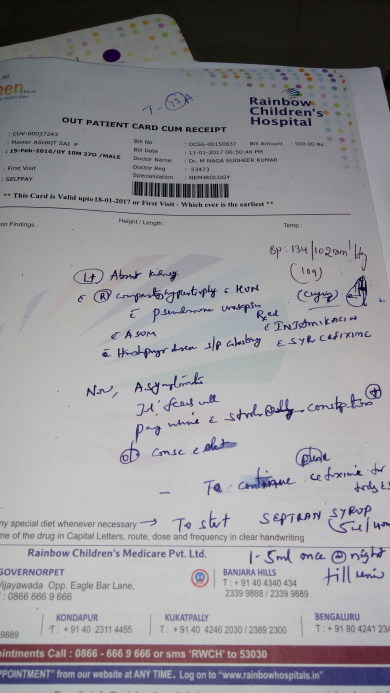 een
T-(13A
Rainbow
Children's
Hospital
OUT PATIENT CARD CUM RECEIPT
: CUV-00037243
: Master ASHRIT SAI P
: 15-Feb-2016/0Y 10M 27D /MALE
: First Visit
: SELFPAY
Bill No : OCS6-00150837 Bill Amount : 500.00 Rs
Bill Date : 11-01-2017 06:50:46 PM
Doctor Name : Dr. M NAGA SUDHEER KUMAR
Doctor Reg : 53473
Specialisation : NEPHROLOGY
** This Card is Valid upto 18-01-2017 or First Visit - Which ever is the earliest **
on Findings :
Height / Length :
Temp :
BP: 134/102 mm Hg
(crying)
(Lt) Absent kidney
(R) compensatory hypertrophy c HUN
c pseudomonas urosepsis
Rxed
c INJ AMIKACIN
c ASOM
c SYR CEFIXIME
c Hirschsprung disease s/p colostomy
Now, Asymptomatic
feeds well
constipation +
To continue cefixime for
ny special diet whenever necessary → To start SEPTRAN SYRUP
me of the drug in Capital Letters, route, dose and frequency in clear handwriting
1-5ml once @ night
till
Rainbow Children's Medicare Pvt. Ltd.
GOVERNORPET
Vijayawada Opp. Eagle Bar Lane,
: 0866 666 9 666
BANJARA HILLS
T : + 91 40 4340 434
2339 9888 / 2339 9889
9889
KONDAPUR
T : + 91 40 2311 4455
KUKATPALLY
T : + 91 40 4246 2030 / 2389 2300
BENGALURU
T : + 91 80 4241 234
ointments Call : 0866 - 666 9 666 or sms 'RWCH' to 53030
PPOINTMENT" from our website at ANY TIME. Log on to "www.rainbowhospitals.in"